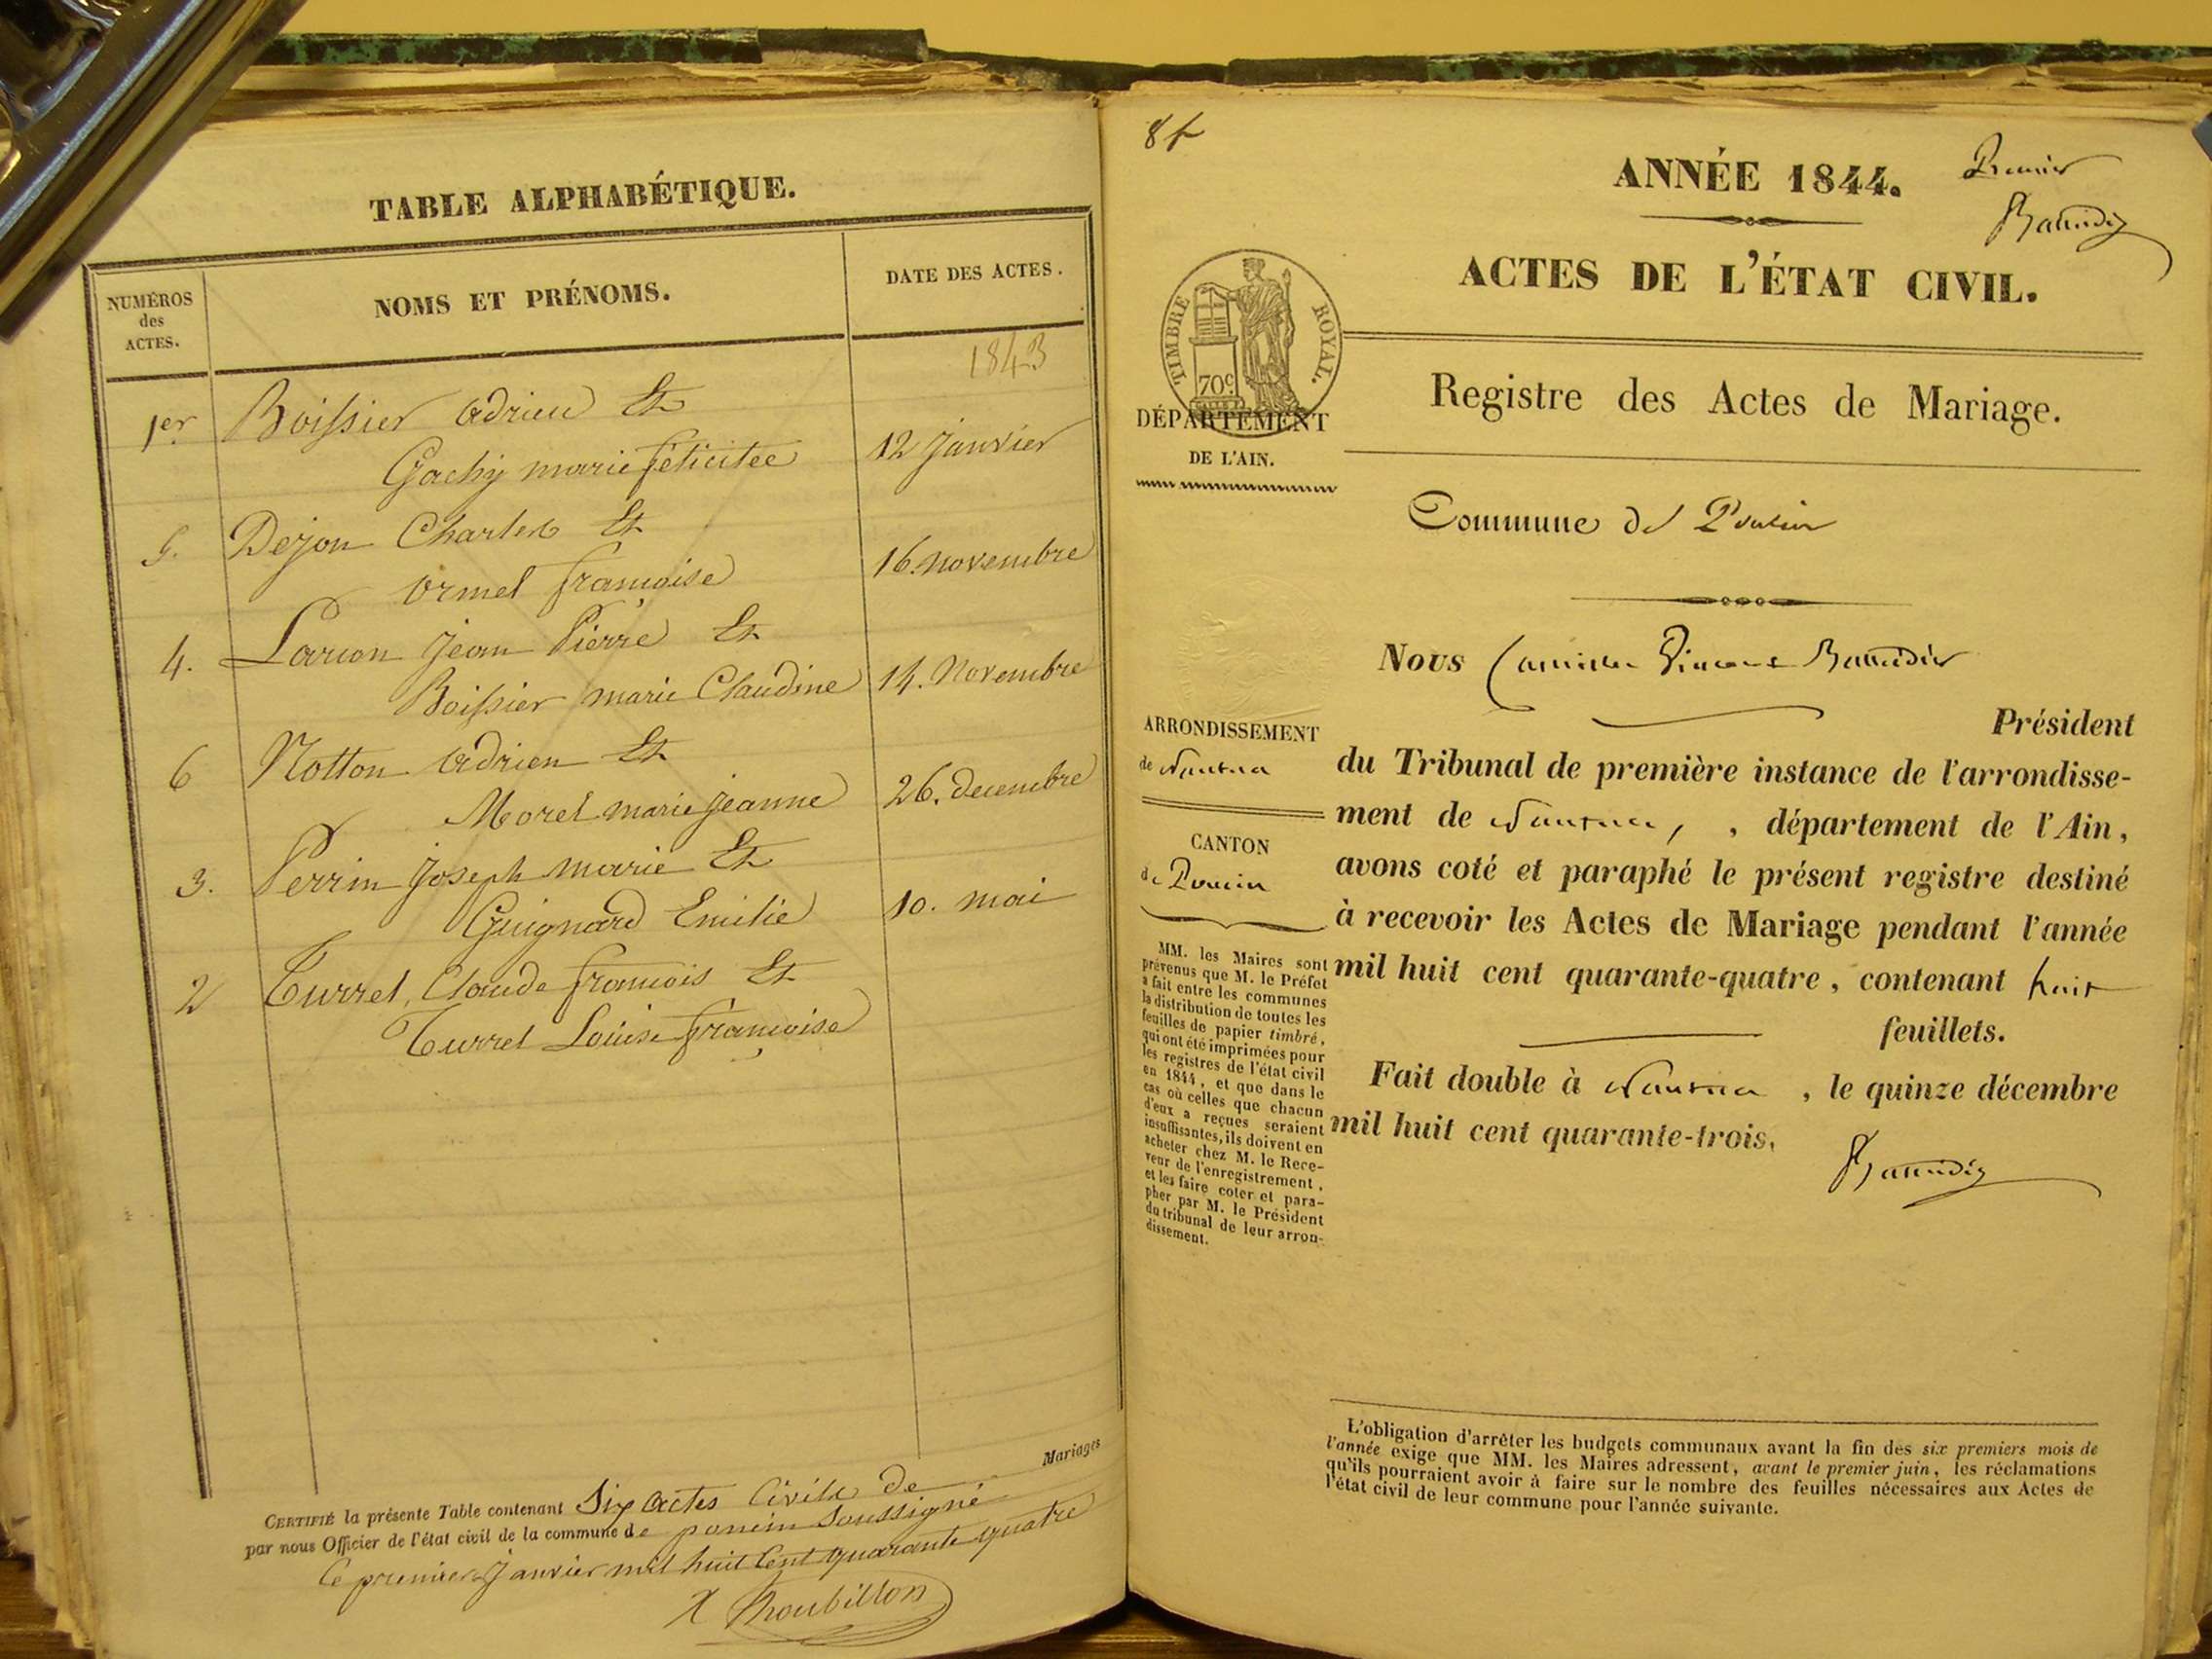 TABLE ALPHABÉTIQUE.
NUMÉROS des ACTES.
NOMS ET PRÉNOMS.
DATE DES ACTES.
1843
1er Boissier Adrien Et
Gachy marie féticitée 12 janvier
5. Dejon Charles Et
Ormel françoise 16. novembre
4. Larcon Jean Pierre Et
Boissier marie Claudine 14. Novembre
6 Notton Adrien Et
Morel marie jeanne 26. decembre
3. Perrin Joseph marie Et
Guignard Emilie 10. mai
2 Turrel, Claude françois Et
Turrel Louise françoise
Mariages
CERTIFIÉ la présente Table contenant Six Actes Civils de
par nous Officier de l'état civil de la commune de poncin soussigné
le premier janvier mil huit Cent quarante quatre
84
ANNÉE 1844.
Premier
ACTES DE L'ÉTAT CIVIL.
TIMBRE ROYAL.
70c
DÉPARTEMENT
DE L'AIN.
Registre des Actes de Mariage.
Commune de Poncin
Nous Camille Vincent
Président
ARRONDISSEMENT
de Nantua
CANTON
de Poncin
du Tribunal de première instance de l'arrondisse-
ment de Nantua, , département de l'Ain,
avons coté et paraphé le présent registre destiné
à recevoir les Actes de Mariage pendant l'année
mil huit cent quarante-quatre, contenant huit
feuillets.
Fait double à Nantua, le quinze décembre
mil huit cent quarante-trois.
MM. les Maires sont
prévenus que M. le Préfet
a fait entre les communes
la distribution de toutes les
feuilles de papier timbré,
qui ont été imprimées pour
les registres de l'état civil
en 1844, et que dans le
cas où celles que chacun
d'eux a reçues seraient
insuffisantes, ils doivent en
acheter chez M. le Rece-
veur de l'enregistrement,
et les faire coter et para-
pher par M. le Président
du tribunal de leur arron-
dissement.
L'obligation d'arrêter les budgets communaux avant la fin des six premiers mois de
l'année exige que MM. les Maires adressent, avant le premier juin, les réclamations
qu'ils pourraient avoir à faire sur le nombre des feuilles nécessaires aux Actes de
l'état civil de leur commune pour l'année suivante.